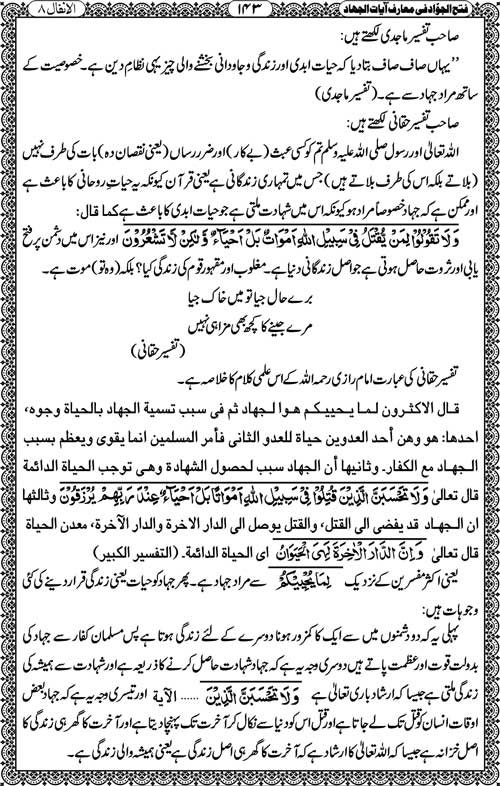 الانفال ۸ ۱۴۳ فتح الجوّاد فی معارف آیات الجهاد
صاحب تفسیر ماجدی لکھتے ہیں:
’’یہاں صاف صاف بتا دیا کہ حیات ابدی اور زندگی و جاودانی بخشنے والی چیز یہی نظام دین ہے۔ خصوصیت کے
ساتھ مراد جہاد سے ہے۔ (تفسیر ماجدی)
صاحب تفسیر حقانی لکھتے ہیں:
اللہ تعالیٰ اور رسول صلی اللہ علیہ وسلم تم کو کسی عبث (بے کار) اور ضرر رساں (یعنی نقصان دہ) بات کی طرف نہیں
(بلاتے بلکہ اس کی طرف بلاتے ہیں) جس میں تمہاری زندگانی ہے یعنی قرآن کیونکہ یہ حیات روحانی کا باعث ہے
اور ممکن ہے کہ جہاد خصوصاً مراد ہو کیونکہ اس میں شہادت ملتی ہے جو حیات ابدی کا باعث ہے کما قال:
وَلَا تَقُوْلُوْا لِمَنْ يُّقْتَلُ فِيْ سَبِيْلِ اللّٰهِ اَمْوَاتٌ بَلْ اَحْيَآءٌ وَّلٰكِنْ لَّا تَشْعُرُوْنَ اور نیز اس میں دشمن پر فتح
یابی اور ثروت حاصل ہوتی ہے جو اصل زندگانی دنیا ہے۔ مغلوب اور مقہور قوم کی زندگی کیا؟ بلکہ (وہ تو) موت ہے۔
برے حال جیا تو میں خاک جیا
مرے جینے کا کچھ بھی مزا ہی نہیں
(تفسیر حقانی)
تفسیر حقانی کی عبارت امام رازی رحمہ اللہ کے اس علمی کلام کا خلاصہ ہے۔
قال الاکثرون لما یحییکم هوا لجهاد ثم فی سبب تسمیة الجهاد بالحیاة وجوه،
احدها: هو وهن أحد العدوین حیاة للعدو الثانی فأمر المسلمین انما یقوی ویعظم بسبب
الجهاد مع الکفار. وثانیها أن الجهاد سبب لحصول الشهادة وهی توجب الحیاة الدائمة
قال تعالیٰ وَلَا تَحْسَبَنَّ الَّذِيْنَ قُتِلُوْا فِيْ سَبِيْلِ اللّٰهِ اَمْوَاتًا بَلْ اَحْيَآءٌ عِنْدَ رَبِّهِمْ يُرْزَقُوْنَ وثالثها
ان الجهاد قد یفضی الی القتل، والقتل یوصل الی الدار الاخرة والدار الآخرة، معدن الحیاة
قال تعالیٰ وَاِنَّ الدَّارَ الْاٰخِرَةَ لَهِيَ الْحَيَوَانُ ای الحیاة الدائمة. (التفسیر الکبیر)
یعنی اکثر مفسرین کے نزدیک لِمَا يُحْيِيْكُمْ سے مراد جہاد ہے۔ پھر جہاد کو حیات یعنی زندگی قرار دینے کی کئی
وجوہات ہیں:
پہلی یہ کہ دو دشمنوں میں سے ایک کا کمزور ہونا دوسرے کے لئے زندگی ہوتا ہے پس مسلمان کفار سے جہاد کی
بدولت قوت اور عظمت پاتے ہیں دوسری وجہ یہ ہے کہ جہاد شہادت حاصل کرنے کا ذریعہ ہے اور شہادت سے ہمیشہ کی
زندگی ملتی ہے جیسا کہ ارشاد باری تعالیٰ ہے وَلَا تَحْسَبَنَّ الَّذِيْنَ ...... الآیة اور تیسری وجہ یہ ہے کہ جہاد بعض
اوقات انسان کو قتل تک لے جاتا ہے اور قتل اس کو دنیا سے نکال کر آخرت تک پہنچا دیتا ہے اور آخرت کا گھر ہی زندگی کا
اصل خزانہ ہے جیسا کہ اللہ تعالیٰ کا ارشاد ہے کہ آخرت کا گھر ہی اصل زندگی ہے یعنی ہمیشہ والی زندگی ہے۔